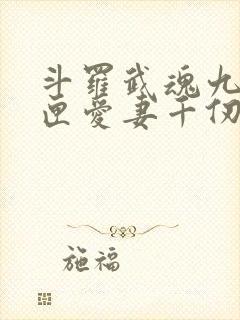 斗羅武魂九
匣愛妻千仞
施福